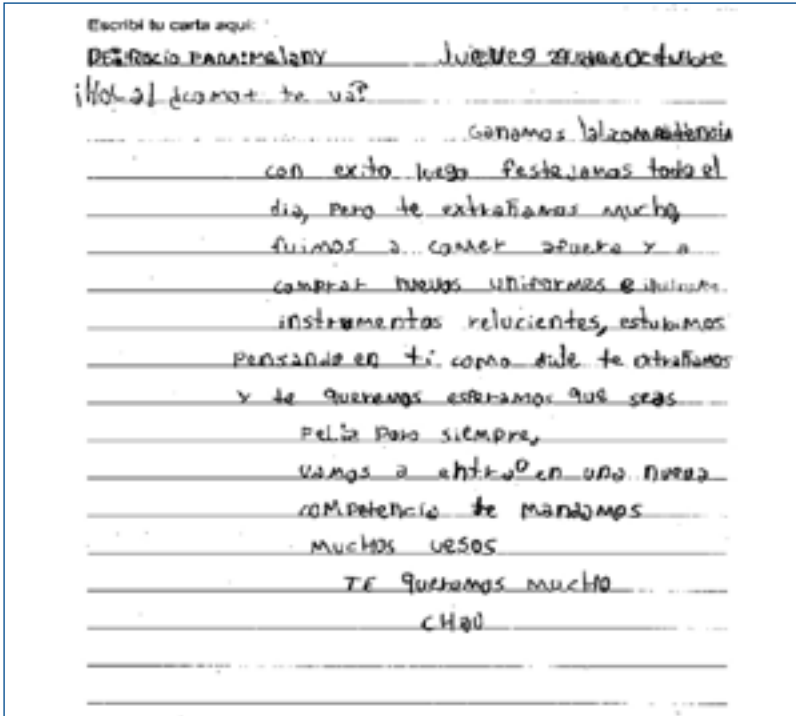 Escribí tu carta aquí:
DE: Rocío PARA: Melany Jueves de Octubre
¡HOLA! ¿como te vá?
Ganamos la competencia
con exito luego festejamos todo el
día, pero te extrañamos mucho,
fuimos a comer afuera y a
comprar nuevos uniformes e
instrumentos relucientes, estubimos
Pensando en ti como dije te extrañamos
y te queremos esperamos que seas
Feliz Para siempre,
vamos a entrar en una nueva
comPetencia te mandamos
Muchos vesos
TE queremos mucho
CHAO